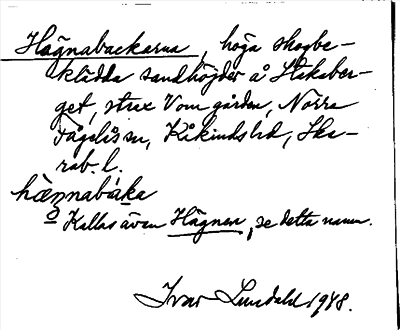 Hägnabackarna, höga skogbe-
klädda sandhöjder å Stakaber-
get, strax V om gården, Norra
Fågelås sn, Kåkinds hd, Ska-
rab. l.
hæŋnabaka
Kallas även Hägnen, se detta namn.
Ivar Lundahl 1948.